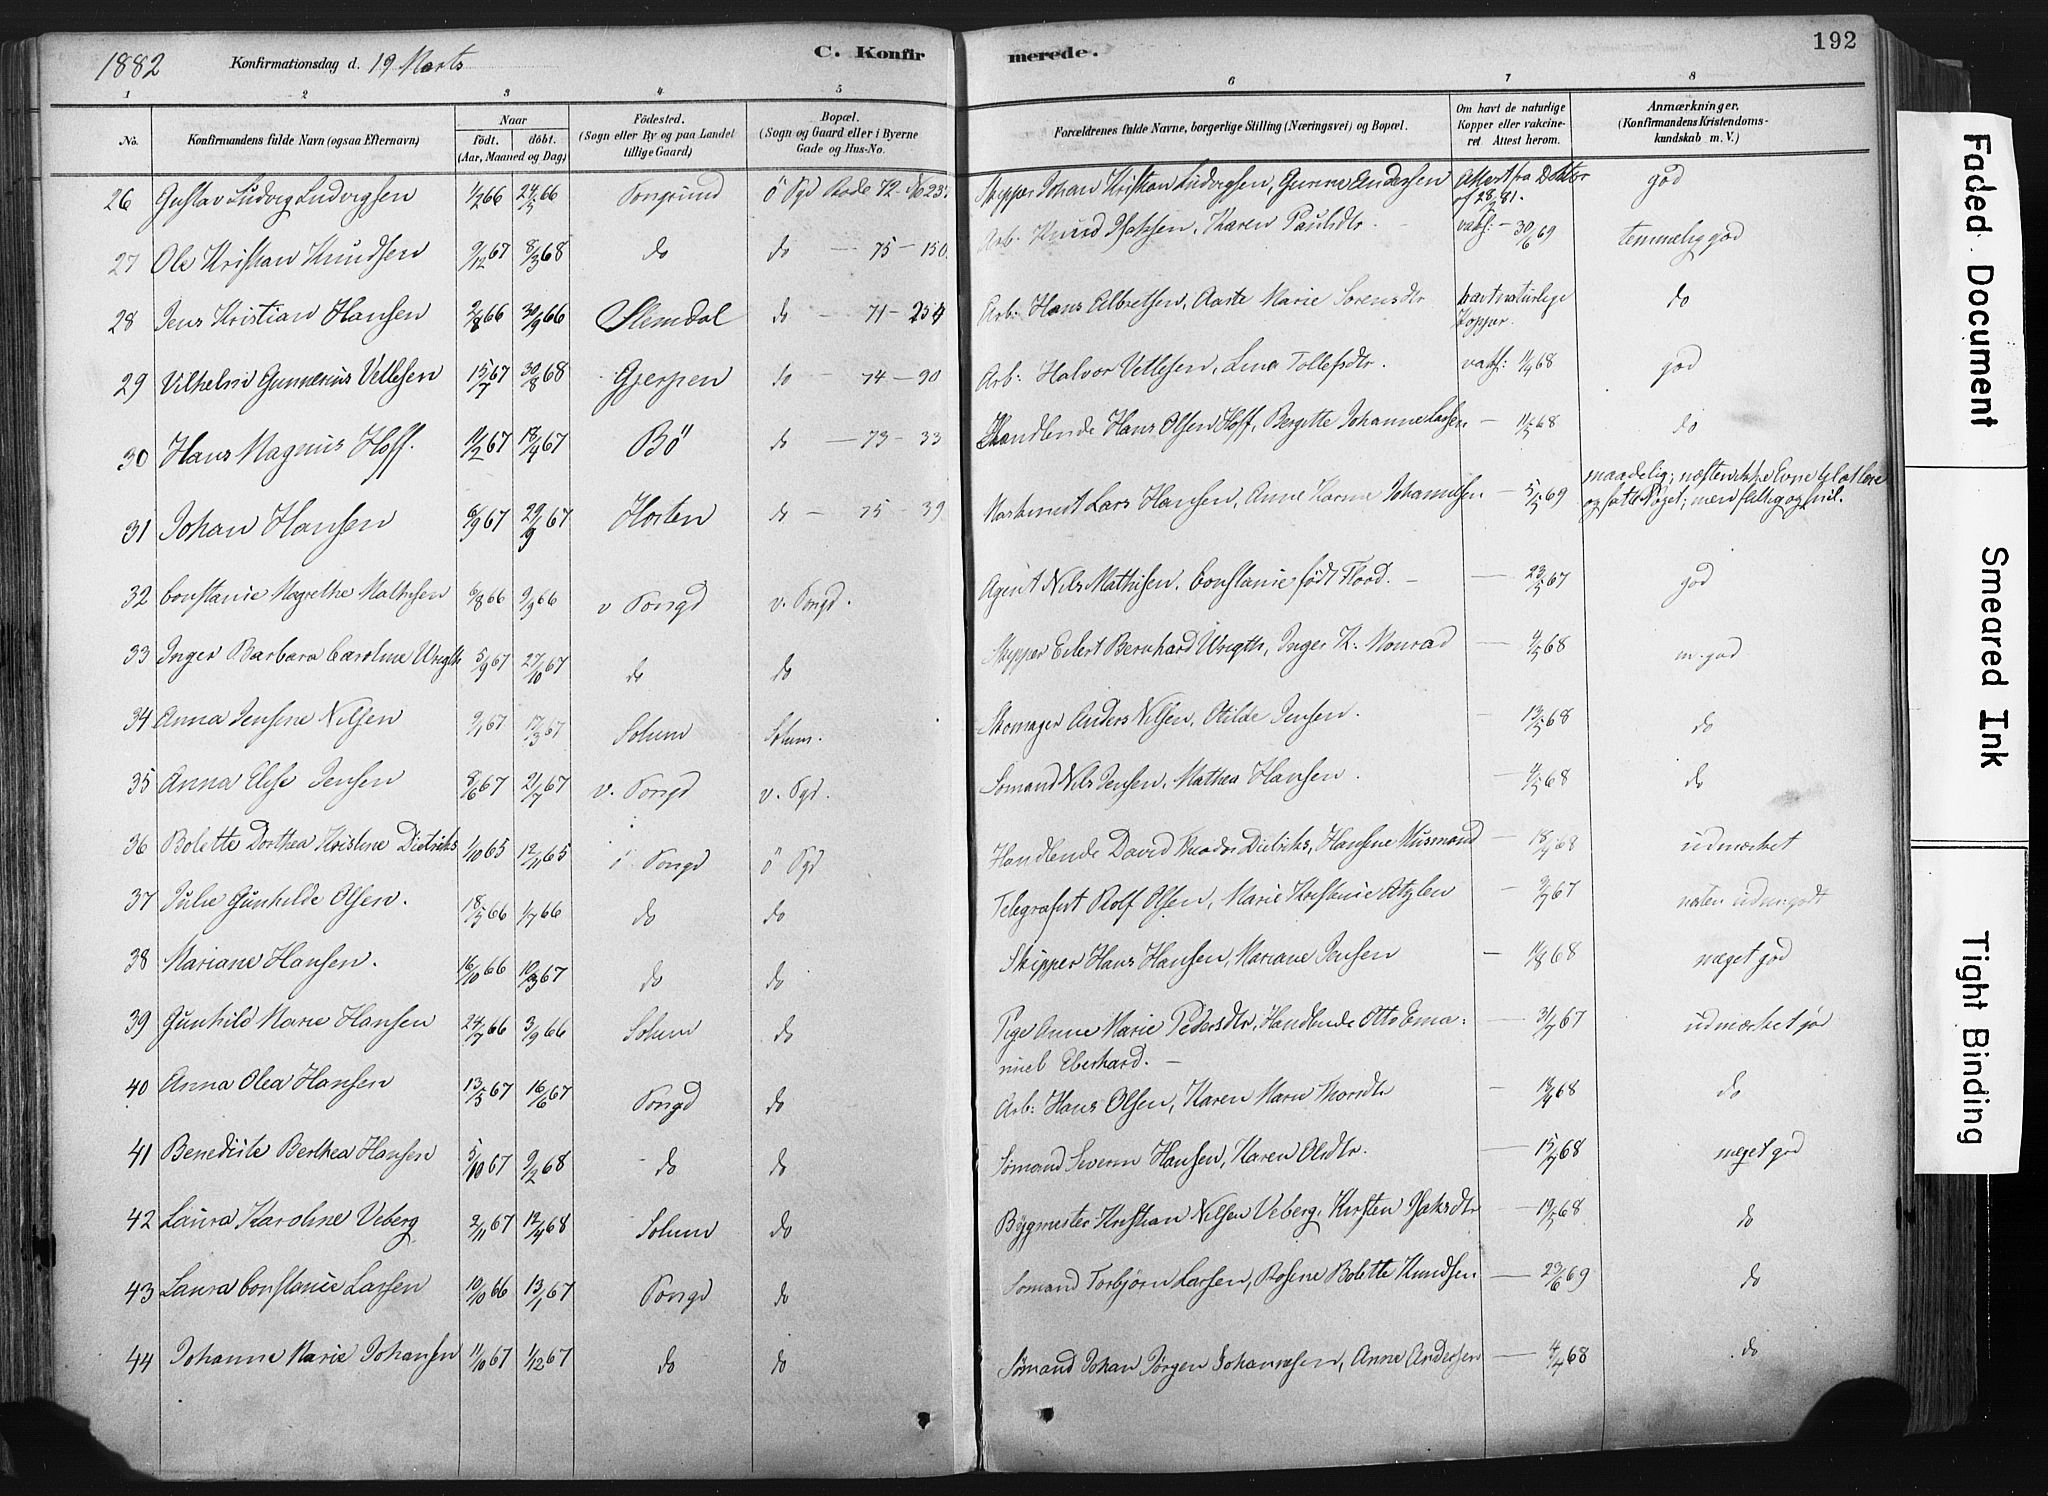 192
1882 Konfirmationsdag d. 19 Marts C. Konfirmerede.
1 2 3 4 5 6 7 8
No. Konfirmandens fulde Navn (ogsaa Efternavn) Naar født. døbt. (Aar, Maaned og Dag) Fødested. (Sogn eller By og paa Landet tillige Gaard) Bopæl. (Sogn og Gaard eller i Byerne Gade og Hus-No. Forældrenes fulde Navne, borgerlige Stilling (Næringsvei) og Bopæl. Om havt de naturlige Kopper eller vakcineret. Attest herom. Anmærkninger. (Konfirmandens Kristendomskundskab m. V.)
26 Gustav Ludvig Ludvigsen 1/2 66 24/5 66 Porsgrund Ö Pgd Rode 72 - No 235 Skipper Johan Kristian Ludvigsen, Gunne Andersen Attest fra Doktor god
27 Ole Kristian Knudsen 9/12 67 8/3 68 do do - 75 - 150 Arb. Knud Isaksen, Karen Paulsdtr. vaks: - 30/6 69 temmelig god
28 Jens Kristian Hansen 2/8 66 30/9 66 Slemdal do - 71 - 254 Arb: Hans Albretsen, Aaste Marie Sørensdtr havt naturlige Kopper. do
29 Vilhelm Gunnerius Vetlesen 15/7 67 30/8 68 Gjerpen do - 74 - 90 Arb: Halvor Vetlesen, Lina Tollefsdtr. vaks: 1/9 68 god
30 Hans Magnus Hoff. 11/2 67 18/4 67 Bö do - 73 - 33 Handlende Hans Olsen Hoff, Bergitte Johanne Larsen - 11/5 68 do
31 Johan Hansen 6/9 67 29/9 67 Horten do - 75 - 39 Lars Hansen, Anne Karine Johannesen - 5/5 69 maadelig; næsten ikke Evne til at lære
32 Constanse Magrethe Mathisen 6/8 66 9/9 66 v Porsgd v. Porsgd. Agent Nils Mathisen, Constanse født Flood. - 23/5 67 god
33 Inger Barbara Caroline Wrigth 5/9 67 27/10 67 do do Skipper Eilert Bernhard Wrigth, Inger K. Monrad - 9/5 68 m. god
34 Anna Jensine Nilsen 9/1 67 17/3 67 Solum Solum. Skomager Anders Nilsen, Otilde Jensen. - 13/5 68 do
35 Anna Elise Jensen 8/6 67 21/7 67 v. Porsgd v. Pgd. Sømand Nils Jensen, Mathea Hansen. - 9/5 68 do
36 Bolette Dorthea Kristine Dietrichs 1/10 65 12/11 65 ö Porsgd ö Pgd Handlende David Theodor Dietrichs, Hansine Musmand - 18/9 68 udmærket
37 Julie Gunhilde Olsen. 18/5 66 1/7 66 do do Telegrafist Rolf Olsen, Marie Kristense - 9/7 67 næsten udm. godt
38 Mariane Hansen. 16/10 66 10/3 67 do do Skipper Hans Hansen, Mariane Jensen - 11/8 68 meget god
39 Gunhild Marie Hansen 24/7 66 3/9 66 Solum do Pige Anne Marie Pedersdtr, Handlende Otto Emanuel Eberhard. - 31/7 67 udmærket god
40 Anna Olea Hansen 13/5 67 16/6 67 Porsgd do Arb: Hans Olsen, Karen Marie Thorsdtr - 18/9 68 do
41 Benedicte Berthea Hansen 5/10 67 9/2 68 do do Sømand Severin Hansen, Karen Olsdtr. - 15/7 68 meget god
42 Laura Karoline Veberg 2/11 67 12/4 68 Solum do Bygmester Kristian Nilsen Veberg, Kirsten Isaksdtr - 19/5 68 do
43 Laura Constanse Larsen 10/10 66 13/1 67 Porsgd do Sømand Torbjørn Larsen, Rosine Bolette Knudsen - 23/6 69 do
44 Johanne Marie Johansen 11/10 67 1/12 67 do do Sømand Johan Jørgen Johannesen, Anne Andersen - 4/4 68 do
Faded Document
Smeared Ink
Tight Binding